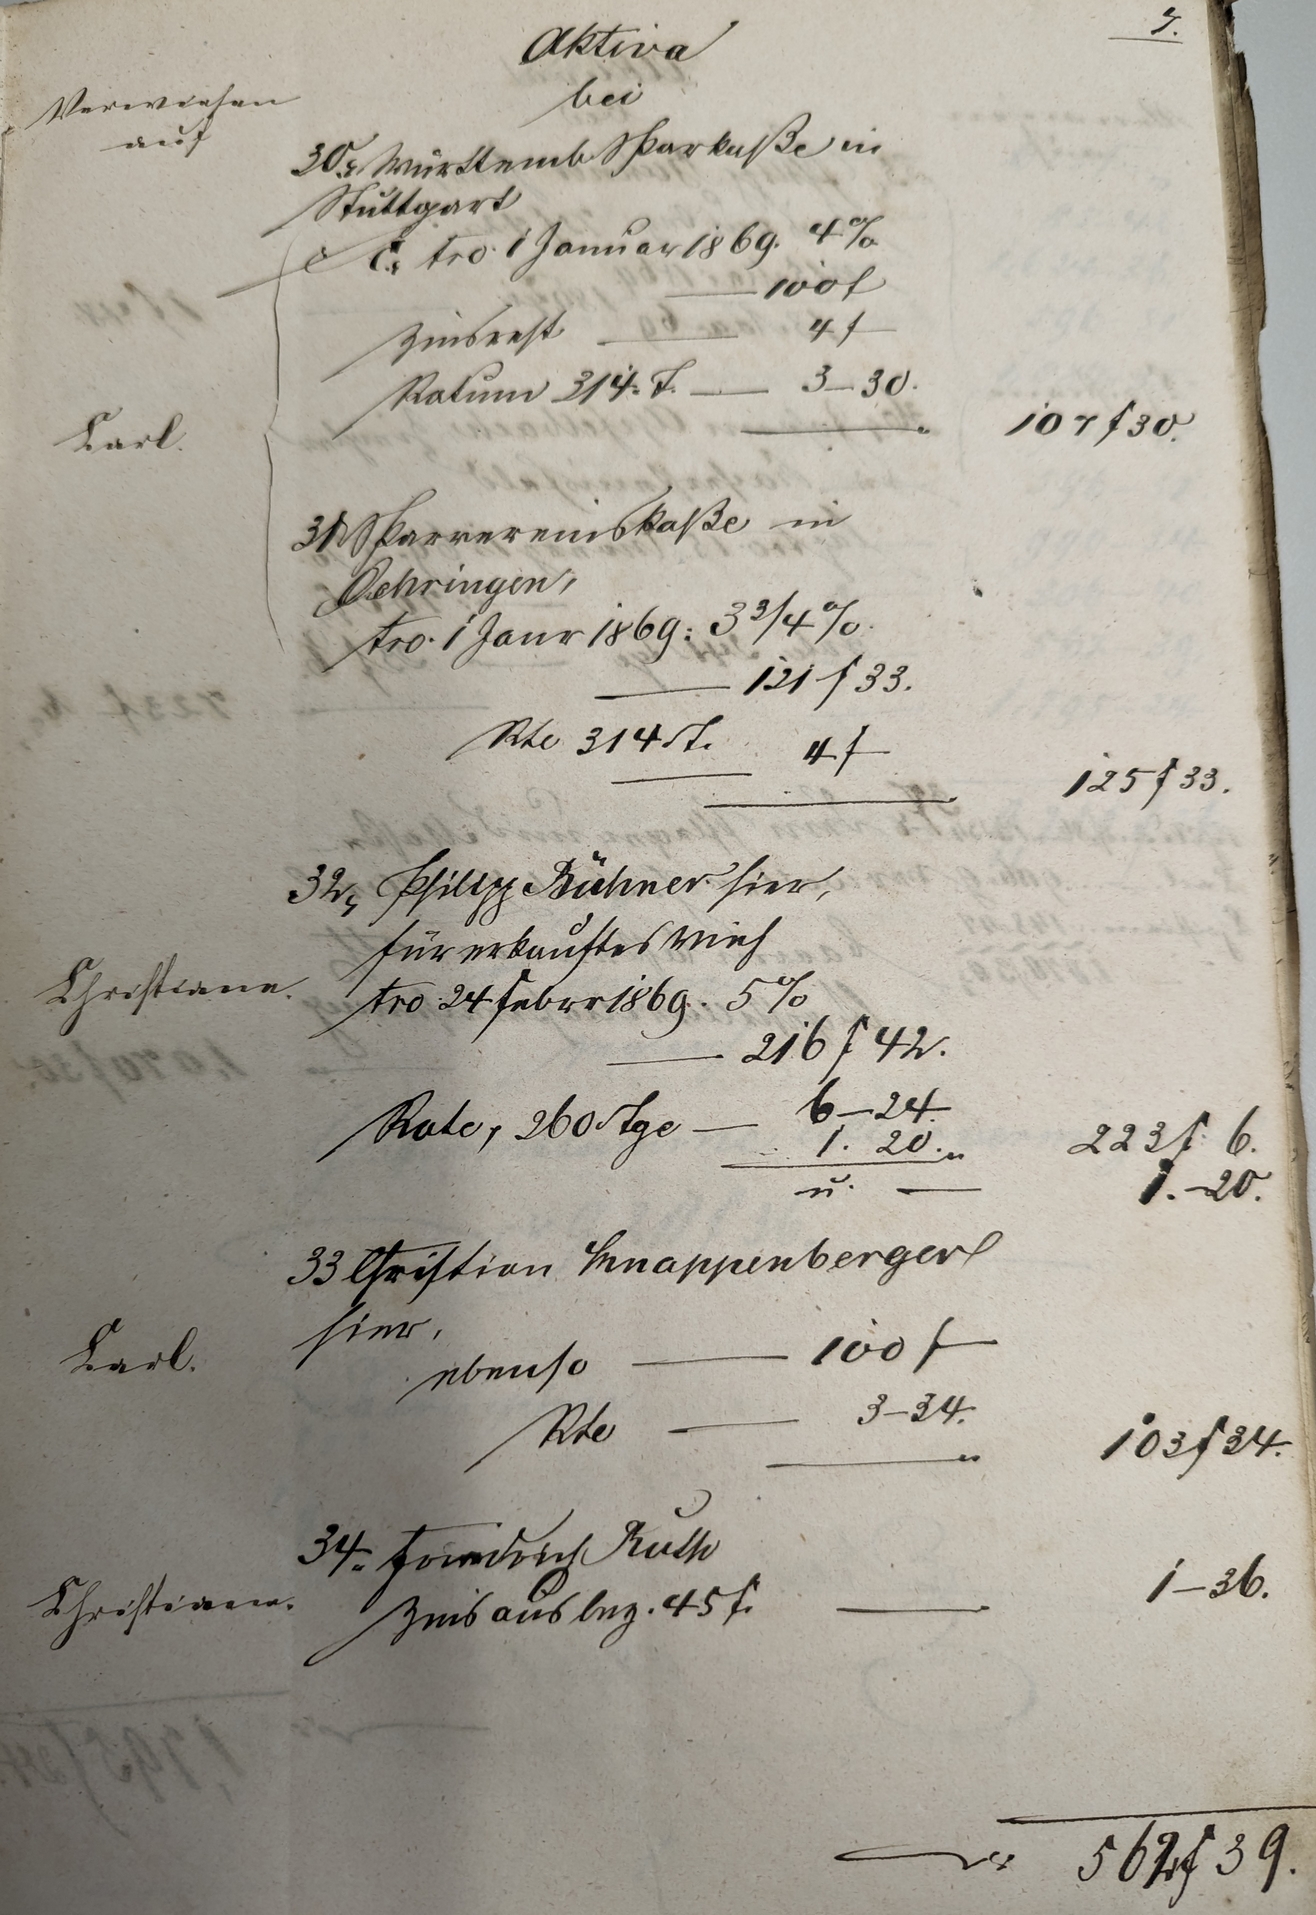 7.
Aktiva
bei
Verwiesen
auf
30, Württemb. Sparkaße in
Stuttgart
C. tro. 1 Januar 1869. 4%
100 f
Zinsrest 4 f
Ratum 314. T. 3–30.
Carl.
107 f 30.
31, Sparvereinskaße in
Oehringen,
tro. 1 Janr 1869: 3 3/4 %.
121 f 33.
Rte 314 T. 4 f
125 f 33.
32, Philipp Bühner hier,
für erkauftes Vieh
Christiane.
tro. 24 Febrr 1869. 5%
216 f 42.
Rate, 260 Tge 6–24.
1. 20.
223 f 6.
u.
1.–20.
33 Christian Knappenberger
hier,
Carl.
ebenso 100 f
Rte 3–34.
103 f 34.
34. Friedrich Ruth
Christiane.
Zins aus bez. 45 f.
1–36.
562 f 39.